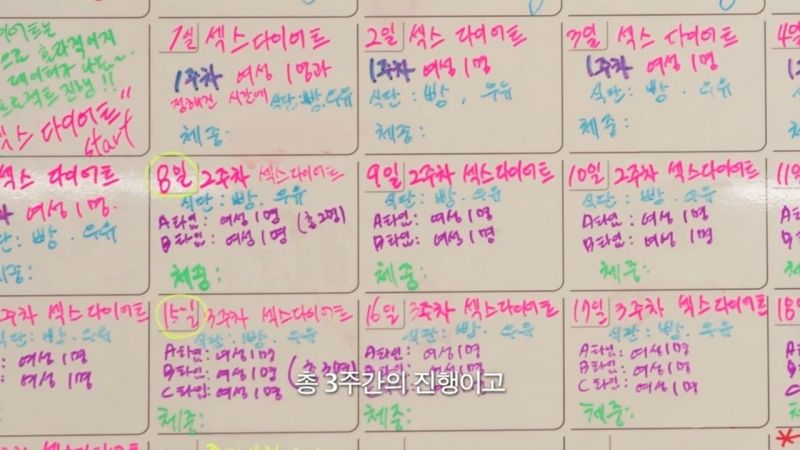 데이터가
프로젝트 진행!!
섹스 다이어트"
start
1일 섹스 다이어트
1주차 여성 1명과
정해진 시간에 식단:빵.우유
체중:
2일 섹스 다이어트
1주차 여성 1명
식단:빵. 우유
체중:
3일 섹스 다이어트
1주차 여성 1명
식단:빵. 우유
체중:
4일
섹스 다이어트
여성 1명.
식단:빵.우유
체중:
8일 2주차 섹스다이어트
식단:빵.우유
A타임: 여성 1명 (총2명)
B타임: 여성 1명
체중:
9일 2주차 섹스다이어트
식단:빵.우유
A타임: 여성 1명
B타임: 여성 1명
체중:
10일 2주차 섹스다이어트
식단:빵.우유
A타임: 여성 1명
B타임: 여성 1명
체중:
11일
3주차 섹스다이어트
빵.우유
여성 1명
여성 1명
15일 3주차 섹스다이어트
식단:빵.우유
A타임: 여성 1명
B타임: 여성 1명 (총 3명)
C타임: 여성 1명
체중:
16일 3주차 섹스다이어트
식단:빵.우유
A타임: 여성 1명
B타임: 여성 1명
C타임: 여성 1명
체중:
17일 3주차 섹스다이어트
식단:빵.우유
A타임: 여성 1명
B타임: 여성 1명
C타임: 여성 1명
체중:
18일
총 3주간의 진행이고